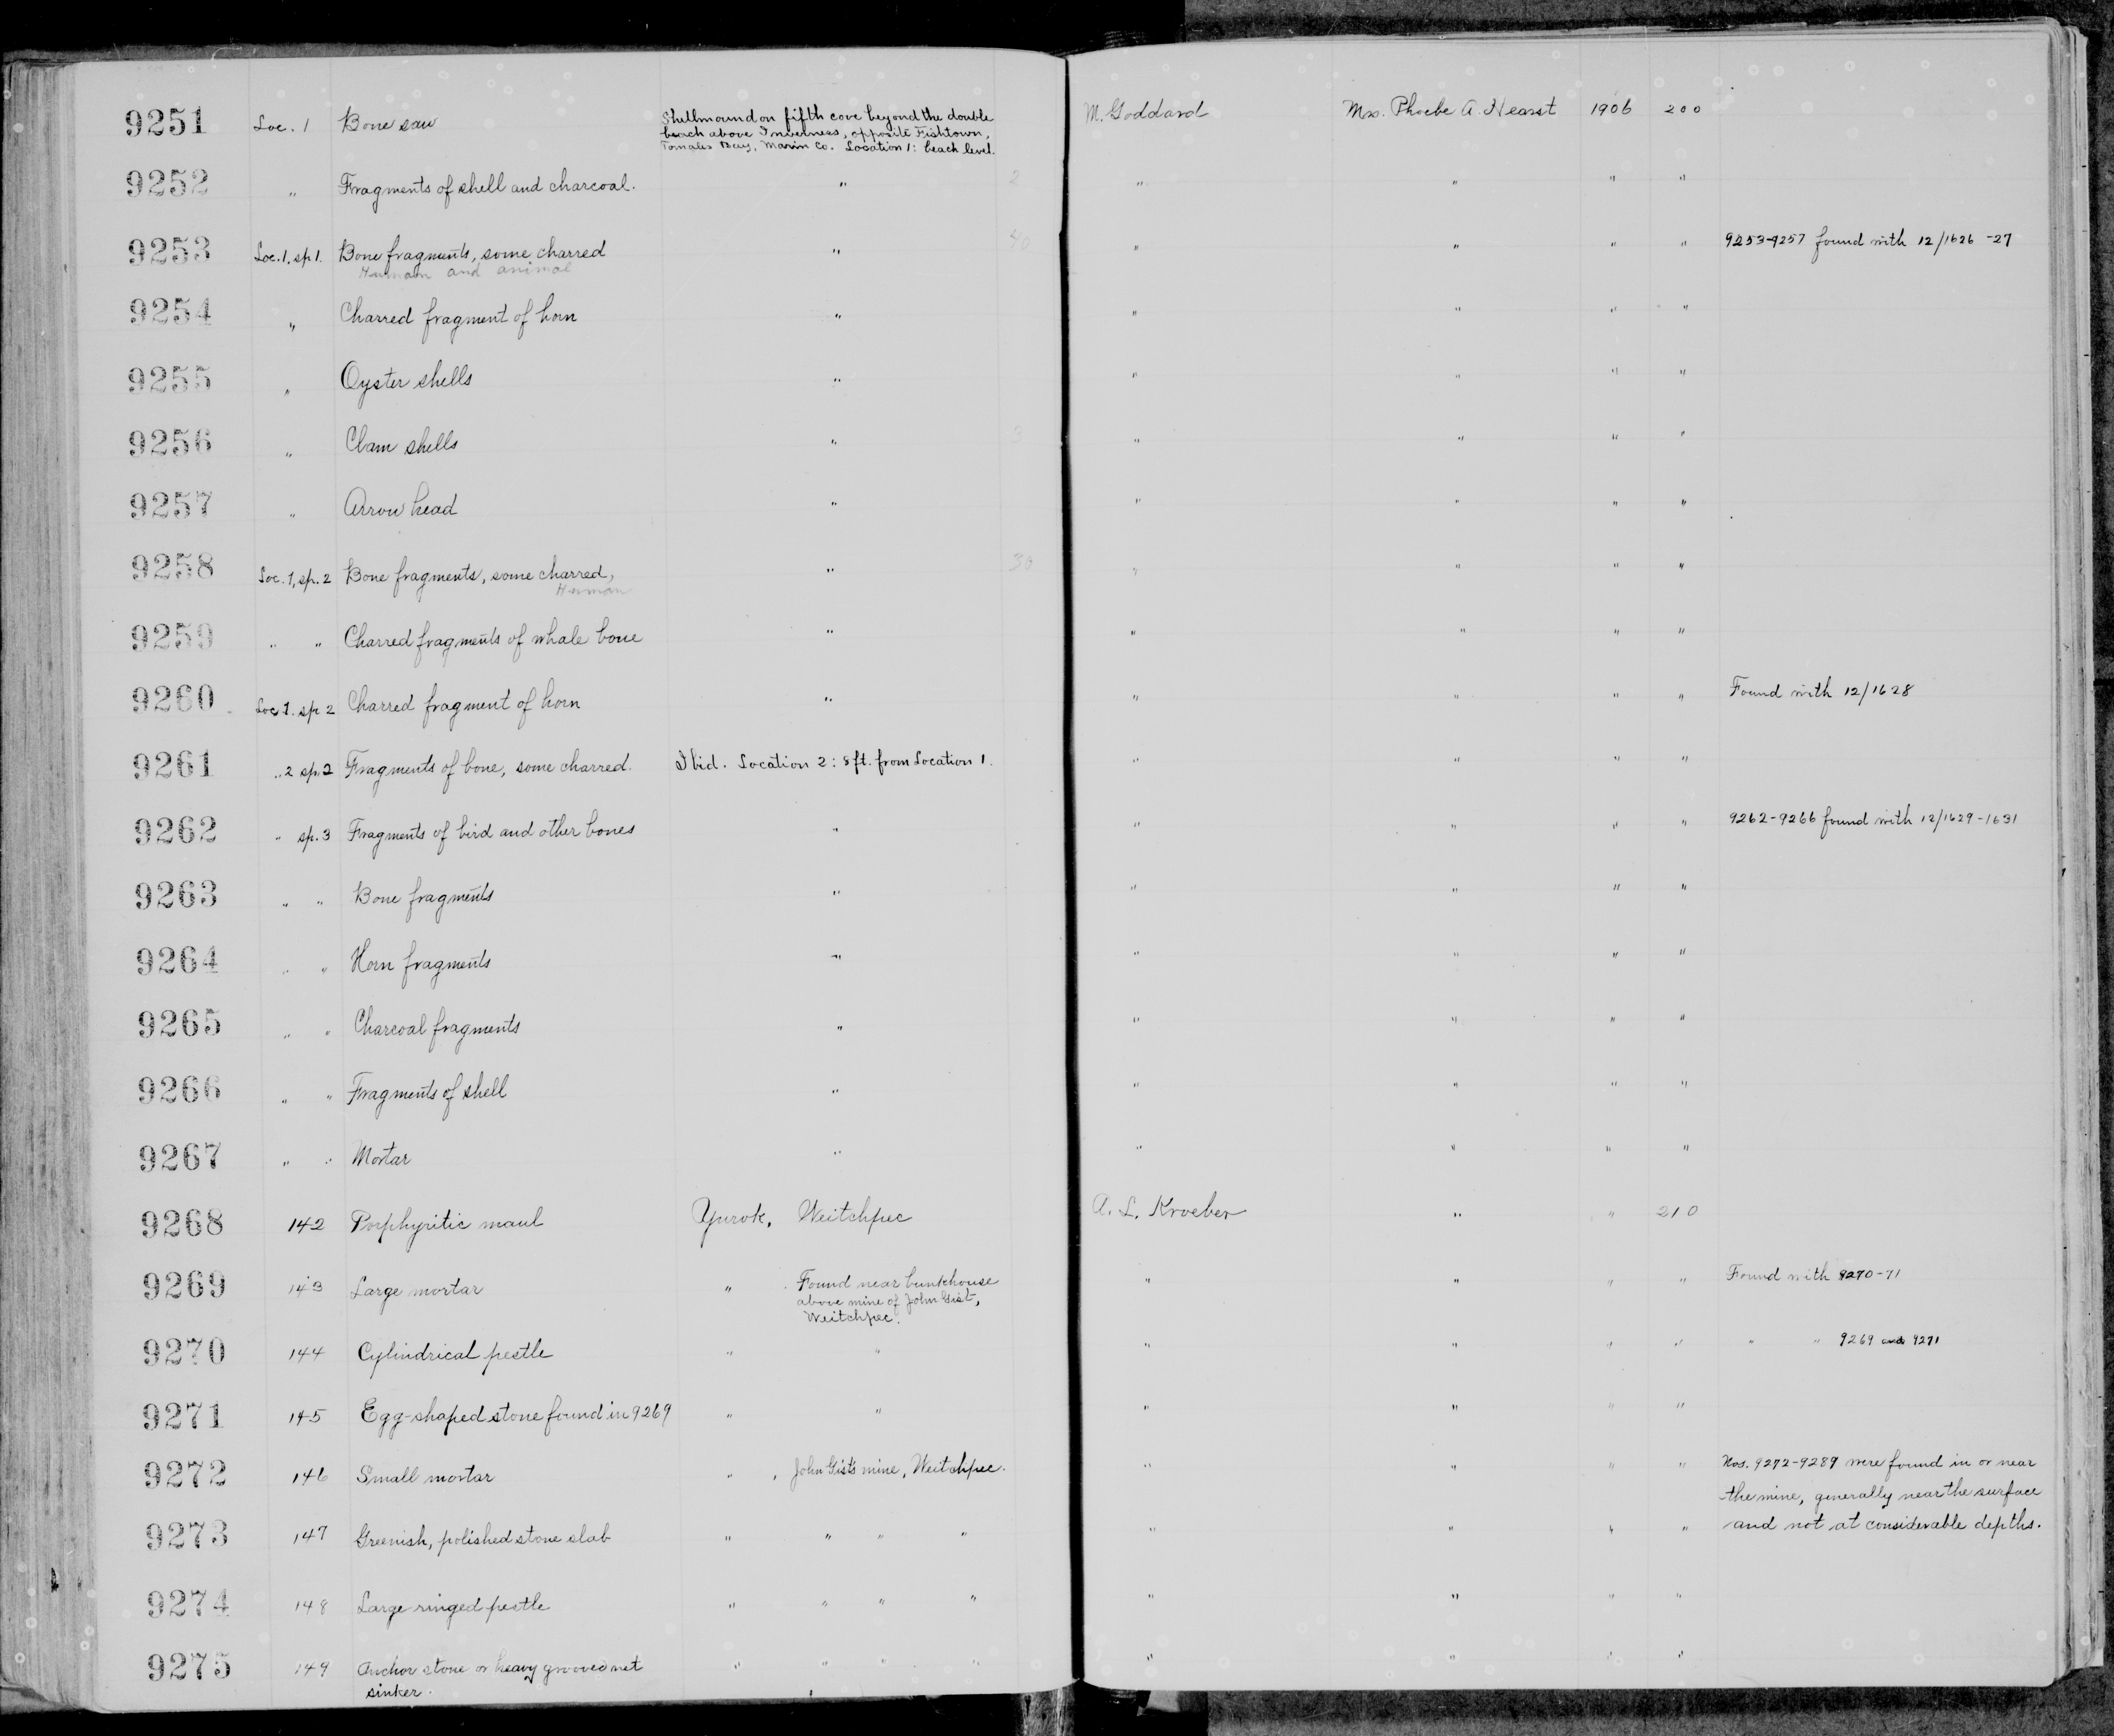 9251 Loc. 1 Bone saw Shellmound on fifth cove beyond the double M. Goddard Mrs. Phoebe A. Hearst 1906 200
beach above Inverness, opposite Fishtown,
Tomales Bay, Marin Co. Location 1: beach level.
9252 " Fragments of shell and charcoal. " 2 " " " "
9253 Loc. 1, sp 1. Bone fragments, some charred " 40 " " " " 9253-9257 found with 12/1626 -27
Human and animal
9254 " Charred fragment of horn " " " " "
9255 " Oyster shells " " " " "
9256 " Clam shells " 3 " " " "
9257 " Arrow head " " " " "
9258 Loc. 1, sp. 2 Bone fragments, some charred, " 30 " " " "
Human
9259 " " Charred fragments of whale bone " " " " "
9260 Loc 1. sp 2 Charred fragment of horn " " " " " Found with 12/1628
9261 " 2 sp. 2 Fragments of bone, some charred. Ibid. Location 2: 8 ft. from Location 1. " " " "
9262 " sp. 3 Fragments of bird and other bones " " " " " 9262-9266 found with 12/1629-1631
9263 " " Bone fragments " " " " "
9264 " " Horn fragments " " " " "
9265 " " Charcoal fragments " " " " "
9266 " " Fragments of shell " " " " "
9267 " " Mortar " " " " "
9268 142 Porphyritic maul Yurok, Weitchpec A. L. Kroeber " " 210
9269 143 Large mortar " Found near bunkhouse " " " " Found with 9270-71
above mine of John Gist,
Weitchpec.
9270 144 Cylindrical pestle " " " " " " " " 9269 and 9271
9271 145 Egg-shaped stone found in 9269 " " " " " "
9272 146 Small mortar " , John Gist's mine, Weitchpec. " " " " Nos. 9272-9289 were found in or near
the mine, generally near the surface
9273 147 Greenish, polished stone slab " " " " " " " " and not at considerable depths.
9274 148 Large ringed pestle " " " " " " " "
9275 149 Anchor stone or heavy grooved net " " " " " " " "
sinker.